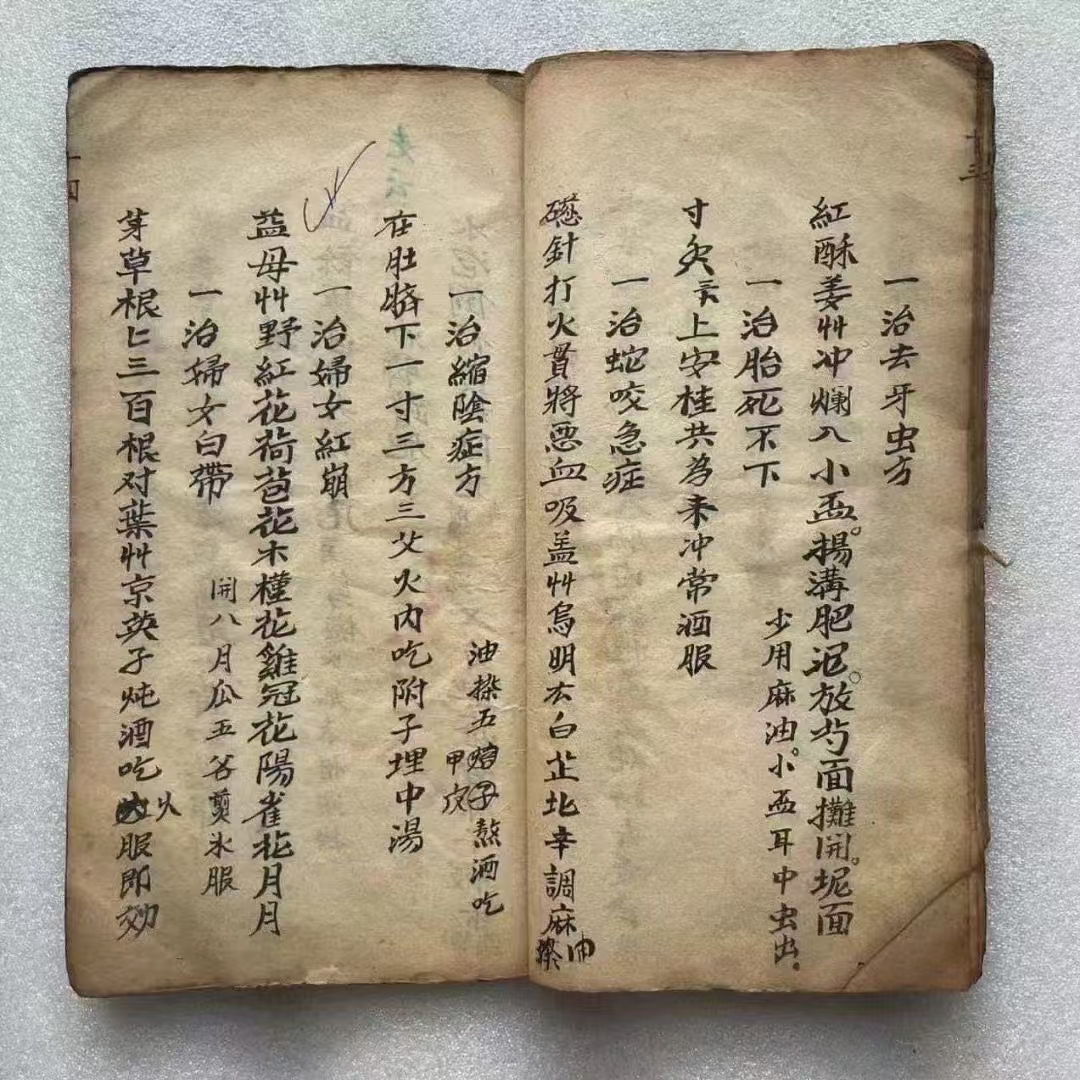 十三
一治去牙虫方
紅酥姜艸冲爛入小盃。揚溝肥泥。放芍面攤開。坭面
少用麻油。小盃耳中虫出。
一治胎死不下
寸灸上安桂共為末冲常酒服
一治蛇咬急症
磁針打火貫將惡血吸盖艸烏明大白芷北辛調麻油
一治縮陰症方
油搽五子熬酒吃
甲皮
在肚臍下一寸三方三父火内吃附子埋中湯
一治婦女紅崩
益母艸野紅花荷苞花木槿花雞冠花陽雀花月月
開八月瓜五谷剪氷服
一治婦女白帶
芽草根匕三百根对葉艸京英子炖酒吃火服即効
十四